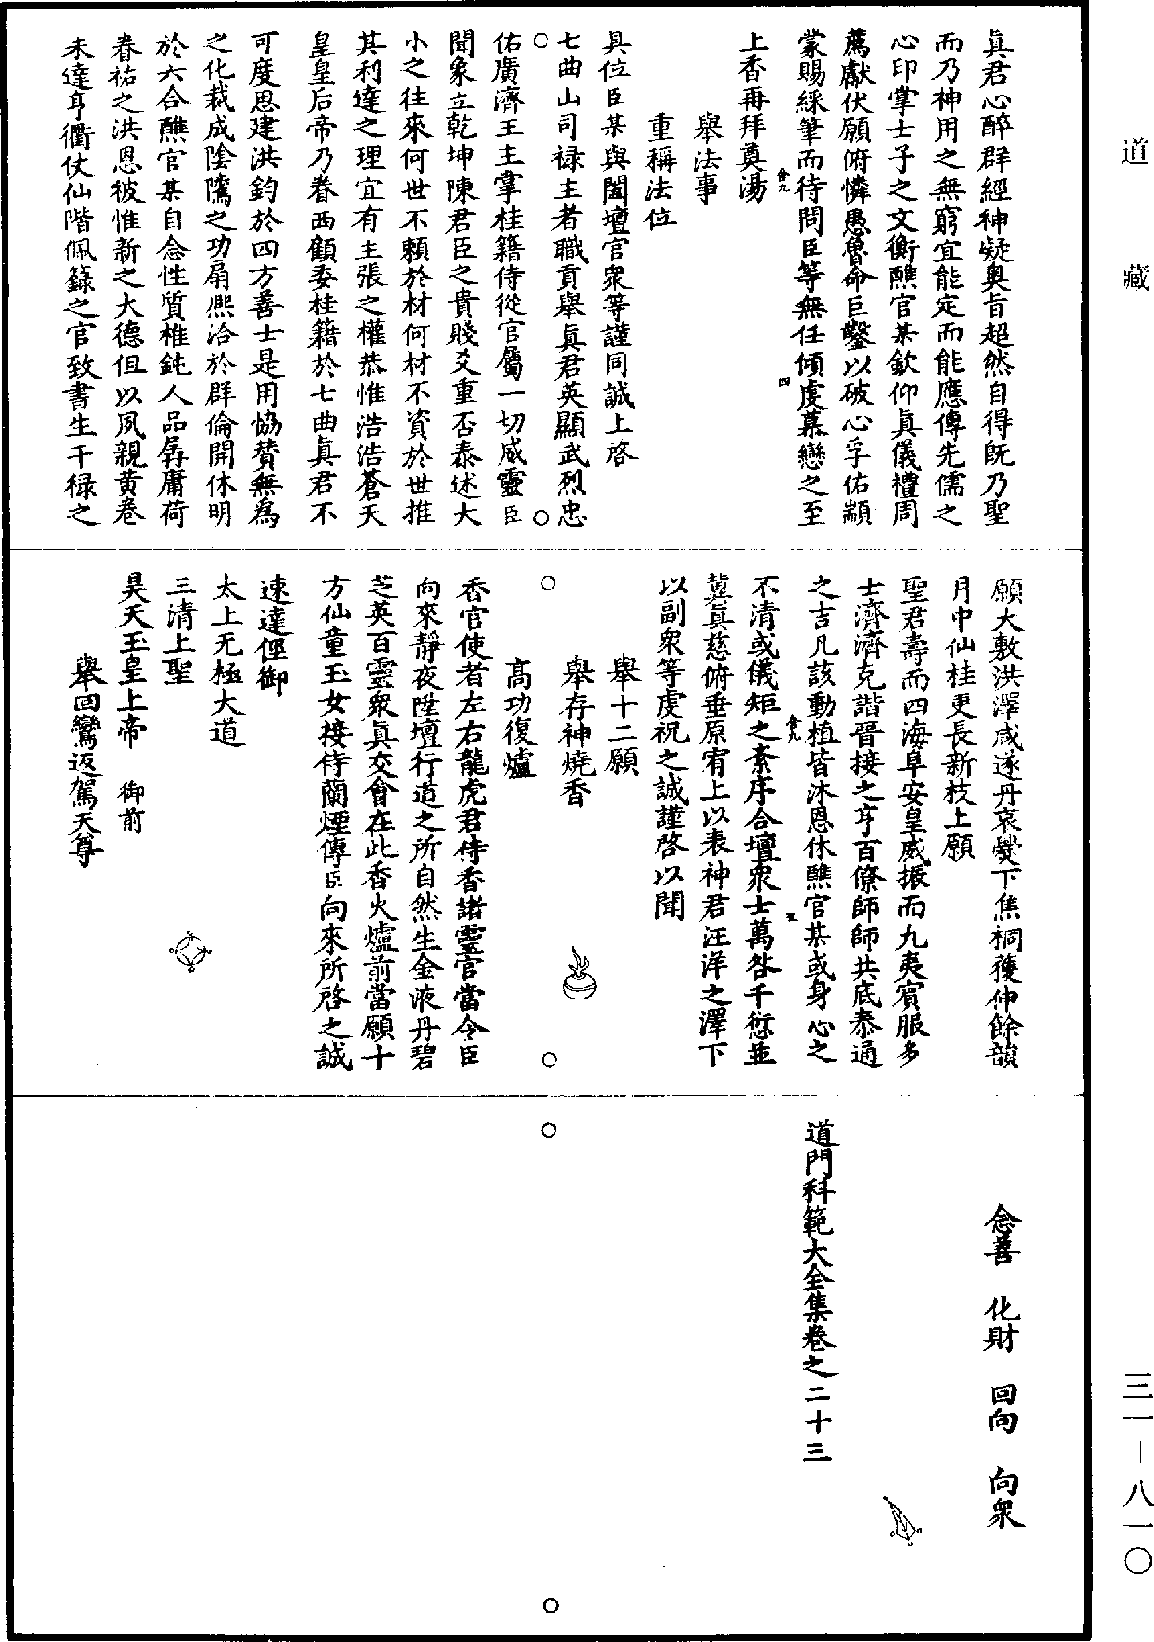 道藏
真君心醉群經神凝奥旨超然自得既乃聖
而乃神用之無窮宜能定而能應傳先儒之
心印掌士子之文衡醮官某欽仰真儀禮周
薦獻伏願俯憐愚魯命巨鑿以破心孚佑顓
蒙賜綵筆而待問臣等無任傾虔慕戀之至
上香再拜奠湯
舉法事
重稱法位
具位臣某與闔壇官衆等謹同誠上啓
七曲山司禄主者職貢舉真君英顯武烈忠
佑廣濟王主掌桂籍侍從官屬一切威靈臣
聞象立乾坤陳君臣之貴賤爻重否泰述大
小之往來何世不賴於材何材不資於世推
其利達之理宜有主張之權恭惟浩浩蒼天
皇皇后帝乃眷西顧委桂籍於七曲真君不
可度思建洪鈞於四方善士是用協賛無為
之化裁成陰隲之功扇熈洽於群倫開休明
於六合醮官某自念性質椎鈍人品孱庸荷
春祐之洪恩被惟新之大德但以夙親黄卷
未達亨衢仗仙階佩籙之官致書生干禄之
願大敷洪澤咸遂丹哀㸑下焦桐獲伸餘韻
月中仙桂更長新枝上願
聖君壽而四海阜安皇威振而九夷賓服多
士濟濟克諧晉接之亨百僚師師共底泰通
之吉凡該動植皆沐恩休醮官某或身心之
不清或儀矩之紊序合壇衆士萬咎千愆並
冀真慈俯垂原宥上以表神君汪洋之澤下
以副衆等虔祝之誠謹啓以聞
舉十二願
舉存神燒香
髙功復爐
香官使者左右龍虎君侍香諸靈官當令臣
向來靜夜陞壇行道之所自然生金液丹碧
芝英百靈衆真交會在此香火爐前當願十
方仙童玉女接侍蘭煙傳臣向來所啓之誠
速達徑御
太上无極大道
三清上聖
昊天玉皇上帝 御前
舉回鸞返駕天尊
念善 化財 回向 向衆
道門科範大全集卷之二十三
三一－八一〇